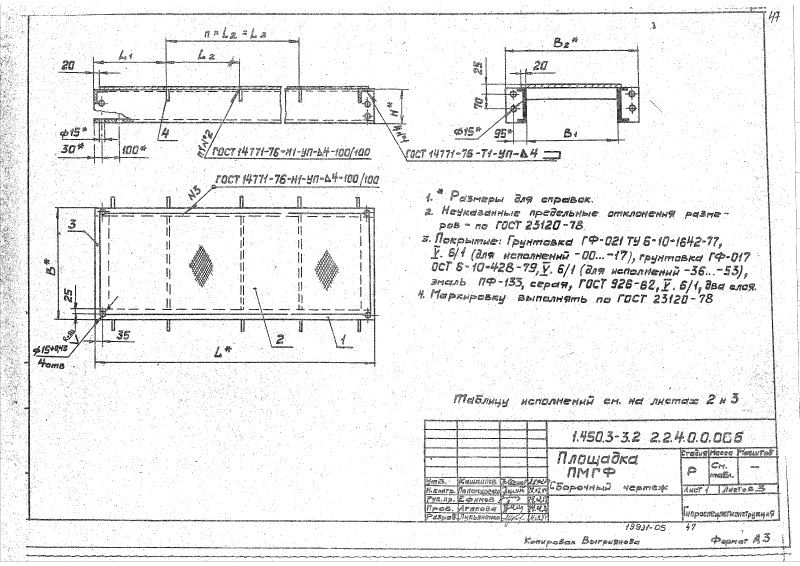 47
n = L2 = L3
L1
L2
20
H*
4
N1 N2
N1
φ15*
30*
100*
ГОСТ 14771-76-Н1-УП-Δ4-100/100
ГОСТ 14771-76-Т1-УП-Δ4
B2*
25
20
70
φ15*
95*
B1
ГОСТ 14771-76-Н1-УП-Δ4-100/100
N3
3
B*
25
35
φ15+0,43
4 отв
L*
2
1
1. * Размеры для справок.
2. Неуказанные предельные отклонения разме-
ров - по ГОСТ 23120-78.
3. Покрытие: Грунтовка ГФ-021 ТУ 6-10-1642-77,
V. 6/1 (для исполнений -00...-17), грунтовка ГФ-017
ОСТ 6-10-428-79, V. 6/1 (для исполнений -36...-53),
эмаль ПФ-133, серая, ГОСТ 926-82, V. 6/1, два слоя.
4. Маркировку выполнять по ГОСТ 23120-78
Таблицу исполнений см. на листах 2 и 3
1.450.3-3.2 2.2.4.0.0.0СБ
Площадка
ПМГФ
Сборочный чертеж
Стадия Масса Масштаб
Р См. табл. —
Лист 1 Листов 3
Гипроспецлегконструкция
Утв. Кашкинов
Н.контр.
Рук.пр. Ефимов
Пров. Агапова
Разраб. Лукьяненко
19931-05 47
Копировал Выгрианова Формат А3